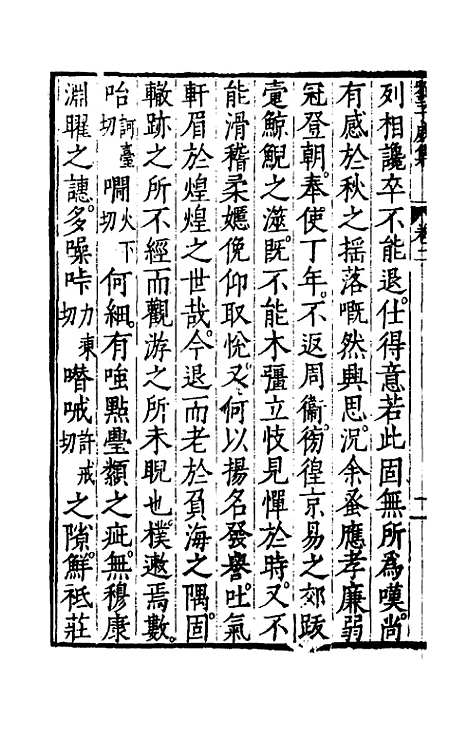 列相讒卒不能退仕得意若此固無所為嘆尚
有感於秋之揺落嘅然興思况余蚤應孝廉弱
冠登朝奉使丁年不返周衞徬徨京易之郊跋
疐鯨鯢之滋既不能木彊立岐見憚於時又不
能滑稽柔嫕俛仰取悅又何以揚名發譽吐氣
軒眉於煌煌之世哉今退而老於負海之隅固
轍跡之所不經而觀游之所未睨也樸遬焉數
咍訶臺切嗰火下切何細有嗤㸃璺纇之疵無穆康
淵躍之譓多噪哢力東切㗖喊許戒切之隙鮮祗莊
卷二
十一